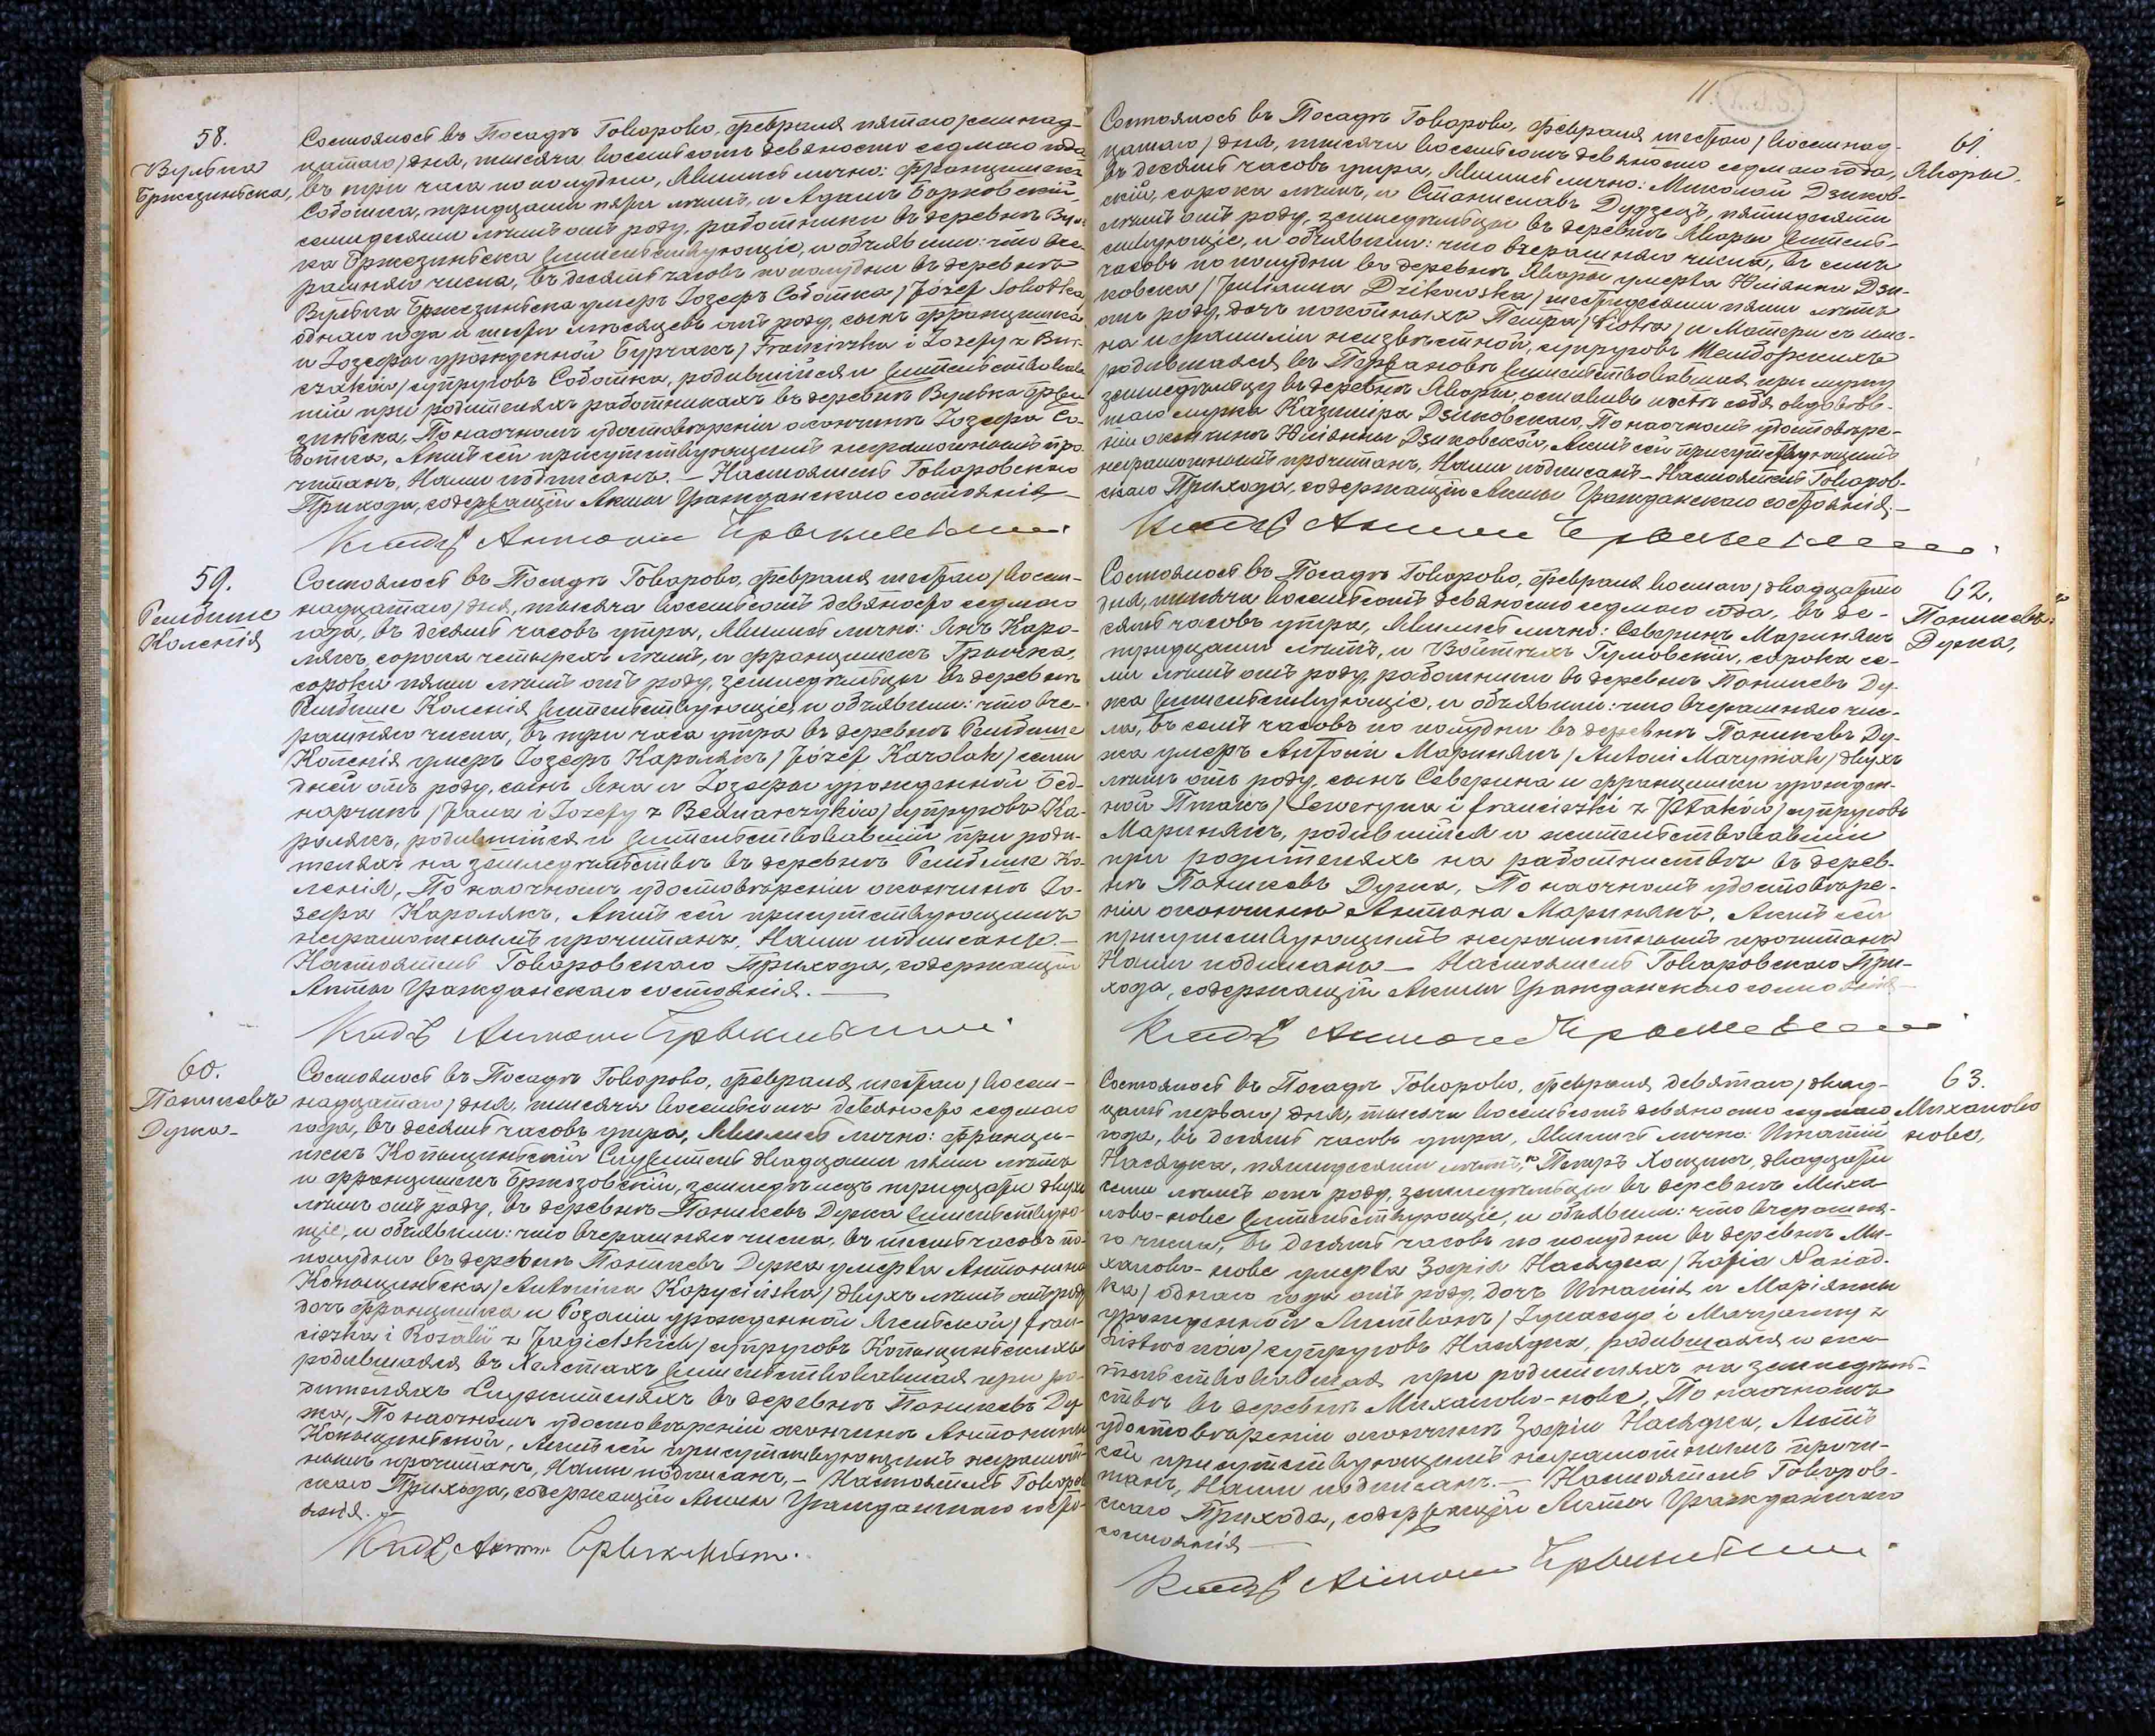 58.
Вулька
Бржезинська,
Состоялось въ Посадѣ Говорово, февраля пятаго /семнад-
цатаго/ дня, тысяча восемьсотъ девяносто седмаго года
въ три часа по полудни, Явились лично: Францишекъ
Соботка, тридцати пяти лѣтъ, и Адамъ Борковскій
семидесяти лѣтъ отъ роду, работники въ деревнѣ Вуль-
ка Бржезинська жительствующіе, и объявили: что вче-
рашняго числа, въ десять часовъ по полудни въ деревнѣ
Вулька Бржезинська умеръ Іозефъ Соботка /Józef Sobotka/
одного года и шести мѣсяцевъ отъ роду, сынъ Францишка
и Іозефы урожденной Бурчакъ /Franciszka i Józefy z Bur-
czaków/ супруговъ Соботка, родившійся и жительствовав-
шій при родителяхъ работникахъ въ деревнѣ Вулька Брже-
зинська, По наочномъ удостовѣреніи о кончинѣ Іозефа Со-
ботка, Актъ сей присутствующимъ неграмотнымъ про-
читанъ, Нами подписанъ. — Настоятель Говоровскаго
Прихода, содержащій Акты Гражданскаго состоянія —
Ксендзъ Антоній
59.
Коленія
Состоялось въ Посадѣ Говорово, февраля шестаго /восем-
надцатаго/ дня, тысяча восемьсотъ девяносто седмаго
года, въ десять часовъ утра, Явились лично: Янъ Каро-
лякъ, сорока четырехъ лѣтъ, и Францишекъ Грычка,
сорока пяти лѣтъ отъ роду, земледѣльцы въ деревнѣ
Коленія жительствующіе, и объявили: что вче-
рашняго числа, въ три часа утра въ деревнѣ
Коленія умеръ Іозефъ Каролякъ /Józef Karolak/ семи
дней отъ роду, сынъ Яна и Іозефы урожденной Бед-
нарчикъ /Jana i Józefy z Bednarczyków/ супруговъ Ка-
ролякъ, родившійся и жительствовавшій при роди-
теляхъ на земледѣльствѣ въ деревнѣ Ко-
ленія, По наочномъ удостовѣреніи о кончинѣ Іо-
зефа Каролякъ, Актъ сей присутствующимъ
неграмотнымъ прочитанъ, Нами подписанъ. —
Настоятель Говоровскаго Прихода, содержащій
Акты Гражданскаго состоянія. —
Ксендзъ Антоній
60.
Поникевъ
Дужа
Состоялось въ Посадѣ Говорово, февраля шестаго /восем-
надцатаго/ дня, тысяча восемьсотъ девяносто седмаго
года, въ десять часовъ утра, Явились лично: Франци-
шекъ Копыциньскій Служитель двадцати пяти лѣтъ
и Францишекъ Бржозовскій, земледѣлецъ тридцати двухъ
лѣтъ отъ роду, въ деревнѣ Поникевъ Дужа жительствую-
щіе, и объявили: что вчерашняго числа, въ шесть часовъ по
полудни въ деревнѣ Поникевъ Дужа умерла Антонина
Копыциньска /Antonina Kopycińska/ двухъ лѣтъ отъ роду
дочь Францишка и Розаліи урожденной Ягельской /Fran-
ciszka i Rozalii z Jagielskich/ супруговъ Копыциньскихъ
родившаяся въ жительствовавшая при ро-
дителяхъ Служителяхъ въ деревнѣ Поникевъ Ду-
жа, По наочномъ удостовѣреніи о кончинѣ Антонины
Копыциньской, Актъ сей присутствующимъ неграмот-
нымъ прочитанъ, Нами подписанъ, — Настоятель Говоров-
скаго Прихода, содержащій Акты Гражданскаго состо-
янія. —
Ксендзъ Антоній
11.
61.
Яворы.
Состоялось въ Посадѣ Говорово, февраля шестаго /восемнад-
цатаго/ дня, тысяча восемьсотъ девяносто седмаго года,
въ десять часовъ утра, Явились лично: Миколай Дзиков-
скій, сорока лѣтъ, и Станиславъ Дудзецъ, пятидесяти
лѣтъ отъ роду, земледѣльцы въ деревнѣ Яворы житель-
ствующіе, и объявили: что вчерашняго числа, въ семь
часовъ по полудни въ деревнѣ Яворы умерла Юліанна Дзи-
ковска /Julianna Dzikowska/ шестидесяти пяти лѣтъ
отъ роду, дочь покойныхъ Петра /Piotra/ и Матери съ име-
на и фамиліи неизвѣстной, супруговъ
родившаяся въ жительствовавшая при мужу
земледѣльцу въ деревнѣ Яворы, оставивъ послѣ себя овдовѣв-
шаго мужа Казиміра Дзиковскаго, По наочномъ удостовѣре-
ніи о кончинѣ Юліанны Дзиковской, Актъ сей присутствующимъ
неграмотнымъ прочитанъ, Нами подписанъ — Настоятель Говоров-
скаго Прихода, содержащій Акты Гражданскаго состоянія —
Ксендзъ Антоній
62.
Поникевъ
Дужа,
Состоялось въ Посадѣ Говорово, февраля восмаго /двадцатаго/
дня, тысяча восемьсотъ девяносто седмаго года, въ де-
сять часовъ утра, Явились лично: Северинъ Маринякъ
тридцати лѣтъ, и Войтѣхъ Гумовскій, сорока се-
ми лѣтъ отъ роду, работники въ деревнѣ Поникевъ Ду-
жа жительствующіе, и объявили: что вчерашняго чис-
ла, въ семь часовъ по полудни въ деревнѣ Поникевъ Ду-
жа умеръ Антони Маринякъ /Antoni Maryniak/ двухъ
лѣтъ отъ роду, сынъ Северина и Францишки урожден-
ной Птакъ /Seweryna i Franciszki z Ptaków/ супруговъ
Маринякъ, родившійся и жительствовавшій
при родителяхъ на работничествѣ въ дерев-
нѣ Поникевъ Дужа, По наочномъ удостовѣре-
ніи о кончинѣ Антона Маринякъ, Актъ сей
присутствующимъ неграмотнымъ прочитанъ
Нами подписанъ — Настоятель Говоровскаго При-
хода, содержащій Акты Гражданскаго состоянія
Ксендзъ Антоній
63.
Михалово
нове,
Состоялось въ Посадѣ Говорово, февраля девятаго /двад-
цать перваго/ дня, тысяча восемьсотъ девяносто седмаго
года, въ десять часовъ утра, Явились лично: Игнатій
Насядка, пятидесяти лѣтъ, и Петръ Хощикъ, двадцати
семи лѣтъ отъ роду, земледѣльцы въ деревнѣ Миха-
лово-нове жительствующіе, и объявили: что вчерашня-
го числа, въ десять часовъ по полудни въ деревнѣ Ми-
халово-нове умерла Зофія Насядка /Zofia Nasiad-
ka/ одного года отъ роду, дочь Игнатія и Маріянны
урожденной Листванъ /Ignacego i Maryanny z
Listwonów/ супруговъ Насядка, родившаяся и жи-
тельствовавшая при родителяхъ на земледѣль-
ствѣ въ деревнѣ Михалово-нове, По наочномъ
удостовѣреніи о кончинѣ Зофіи Насядка, Актъ
сей присутствующимъ неграмотнымъ прочи-
танъ, Нами подписанъ. — Настоятель Говоров-
скаго Прихода, содержащій Акты Гражданскаго
состоянія —
Ксендзъ Антоній